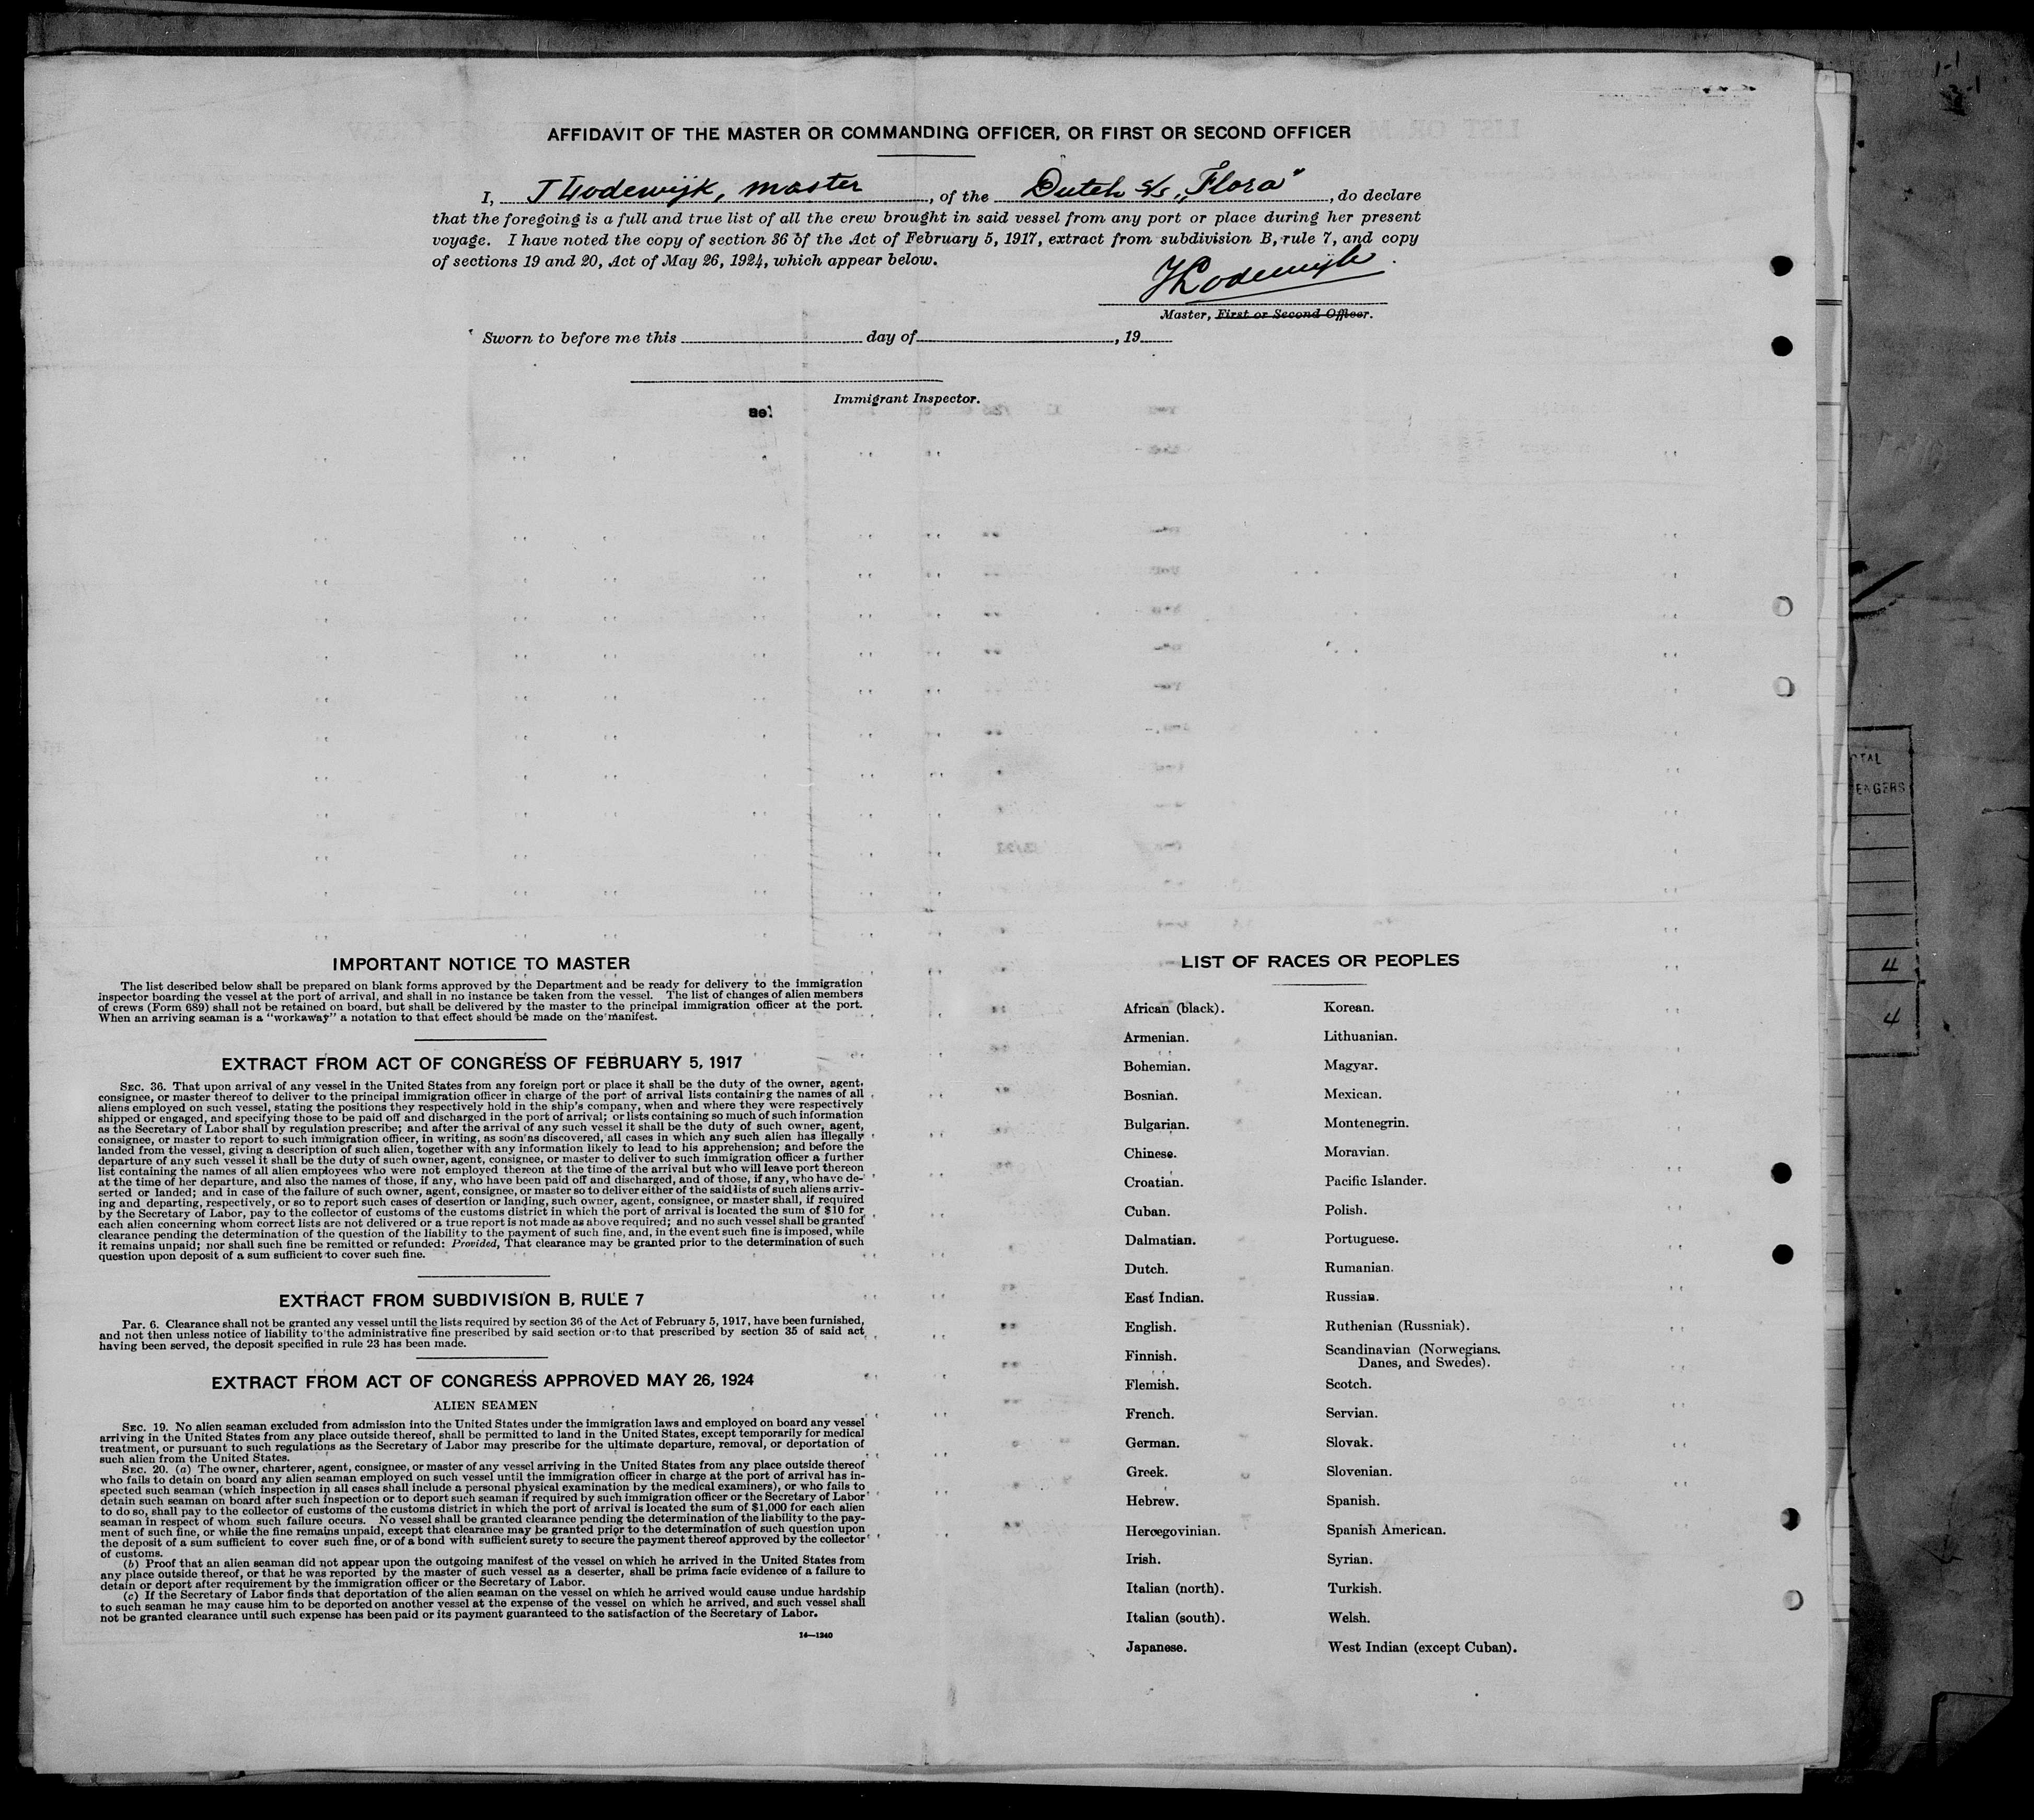 AFFIDAVIT OF THE MASTER OR COMMANDING OFFICER, OR FIRST OR SECOND OFFICER
I, J Lodewijk, master, of the Dutch s/s „Flora", do declare
that the foregoing is a full and true list of all the crew brought in said vessel from any port or place during her present
voyage. I have noted the copy of section 36 of the Act of February 5, 1917, extract from subdivision B, rule 7, and copy
of sections 19 and 20, Act of May 26, 1924, which appear below.
JLodewijk
Master, First or Second Officer.
Sworn to before me this day of , 19
Immigrant Inspector.
IMPORTANT NOTICE TO MASTER
The list described below shall be prepared on blank forms approved by the Department and be ready for delivery to the immigration
inspector boarding the vessel at the port of arrival, and shall in no instance be taken from the vessel. The list of changes of alien members
of crews (Form 689) shall not be retained on board, but shall be delivered by the master to the principal immigration officer at the port.
When an arriving seaman is a "workaway" a notation to that effect should be made on the manifest.
EXTRACT FROM ACT OF CONGRESS OF FEBRUARY 5, 1917
SEC. 36. That upon arrival of any vessel in the United States from any foreign port or place it shall be the duty of the owner, agent,
consignee, or master thereof to deliver to the principal immigration officer in charge of the port of arrival lists containing the names of all
aliens employed on such vessel, stating the positions they respectively hold in the ship's company, when and where they were respectively
shipped or engaged, and specifying those to be paid off and discharged in the port of arrival; or lists containing so much of such information
as the Secretary of Labor shall by regulation prescribe; and after the arrival of any such vessel it shall be the duty of such owner, agent,
consignee, or master to report to such immigration officer, in writing, as soon as discovered, all cases in which any such alien has illegally
landed from the vessel, giving a description of such alien, together with any information likely to lead to his apprehension; and before the
departure of any such vessel it shall be the duty of such owner, agent, consignee, or master to deliver to such immigration officer a further
list containing the names of all alien employees who were not employed thereon at the time of the arrival but who will leave port thereon
at the time of her departure, and also the names of those, if any, who have been paid off and discharged, and of those, if any, who have de-
serted or landed; and in case of the failure of such owner, agent, consignee, or master so to deliver either of the said lists of such aliens arriv-
ing and departing, respectively, or so to report such cases of desertion or landing, such owner, agent, consignee, or master shall, if required
by the Secretary of Labor, pay to the collector of customs of the customs district in which the port of arrival is located the sum of $10 for
each alien concerning whom correct lists are not delivered or a true report is not made as above required; and no such vessel shall be granted
clearance pending the determination of the question of the liability to the payment of such fine, and, in the event such fine is imposed, while
it remains unpaid; nor shall such fine be remitted or refunded: Provided, That clearance may be granted prior to the determination of such
question upon deposit of a sum sufficient to cover such fine.
EXTRACT FROM SUBDIVISION B, RULE 7
Par. 6. Clearance shall not be granted any vessel until the lists required by section 36 of the Act of February 5, 1917, have been furnished,
and not then unless notice of liability to the administrative fine prescribed by said section or to that prescribed by section 35 of said act
having been served, the deposit specified in rule 23 has been made.
EXTRACT FROM ACT OF CONGRESS APPROVED MAY 26, 1924
ALIEN SEAMEN
SEC. 19. No alien seaman excluded from admission into the United States under the immigration laws and employed on board any vessel
arriving in the United States from any place outside thereof, shall be permitted to land in the United States, except temporarily for medical
treatment, or pursuant to such regulations as the Secretary of Labor may prescribe for the ultimate departure, removal, or deportation of
such alien from the United States.
SEC. 20. (a) The owner, charterer, agent, consignee, or master of any vessel arriving in the United States from any place outside thereof
who fails to detain on board any alien seaman employed on such vessel until the immigration officer in charge at the port of arrival has in-
spected such seaman (which inspection in all cases shall include a personal physical examination by the medical examiners), or who fails to
detain such seaman on board after such inspection or to deport such seaman if required by such immigration officer or the Secretary of Labor
to do so, shall pay to the collector of customs of the customs district in which the port of arrival is located the sum of $1,000 for each alien
seaman in respect of whom such failure occurs. No vessel shall be granted clearance pending the determination of the liability to the pay-
ment of such fine, or while the fine remains unpaid, except that clearance may be granted prior to the determination of such question upon
the deposit of a sum sufficient to cover such fine, or of a bond with sufficient surety to secure the payment thereof approved by the collector
of customs.
(b) Proof that an alien seaman did not appear upon the outgoing manifest of the vessel on which he arrived in the United States from
any place outside thereof, or that he was reported by the master of such vessel as a deserter, shall be prima facie evidence of a failure to
detain or deport after requirement by the immigration officer or the Secretary of Labor.
(c) If the Secretary of Labor finds that deportation of the alien seaman on the vessel on which he arrived would cause undue hardship
to such seaman he may cause him to be deported on another vessel at the expense of the vessel on which he arrived, and such vessel shall
not be granted clearance until such expense has been paid or its payment guaranteed to the satisfaction of the Secretary of Labor.
14—1240
LIST OF RACES OR PEOPLES
African (black).
Armenian.
Bohemian.
Bosnian.
Bulgarian.
Chinese.
Croatian.
Cuban.
Dalmatian.
Dutch.
East Indian.
English.
Finnish.
Flemish.
French.
German.
Greek.
Hebrew.
Hercegovinian.
Irish.
Italian (north).
Italian (south).
Japanese.
Korean.
Lithuanian.
Magyar.
Mexican.
Montenegrin.
Moravian.
Pacific Islander.
Polish.
Portuguese.
Rumanian.
Russian.
Ruthenian (Russniak).
Scandinavian (Norwegians,
Danes, and Swedes).
Scotch.
Servian.
Slovak.
Slovenian.
Spanish.
Spanish American.
Syrian.
Turkish.
Welsh.
West Indian (except Cuban).
4
4